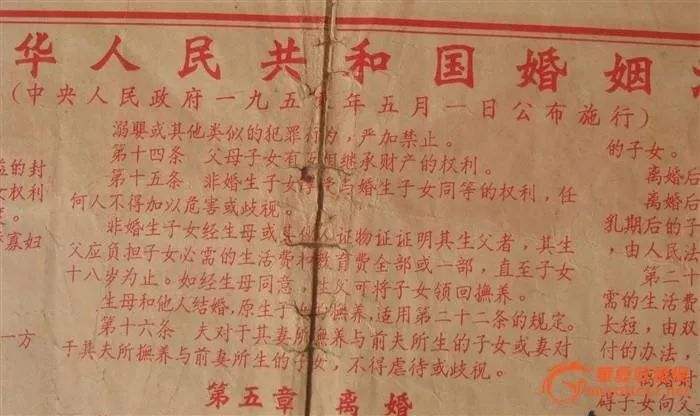 华人民共和国婚姻
(中央人民政府一九五 年五月一日公布施行)
的封
女权利
寡妇
一方
溺婴或其他类似的犯罪行为,严加禁止。
第十四条 父母子女有互相继承财产的权利。
第十五条 非婚生子女享受与婚生子女同等的权利,任
何人不得加以危害或歧视。
非婚生子女经生母或其他人证物证证明其生父者,其生
父应负担子女必需的生活费和教育费全部或一部,直至子女
十八岁为止。如经生母同意,生父可将子女领回抚养。
生母和他人结婚,原生子女的抚养,适用第二十二条的规定。
第十六条 夫对于其妻所抚养与前夫所生的子女或妻对
于其夫所抚养与前妻所生的子女,不得虐待或歧视。
第五章 离婚
的子女。
离婚后
离婚后
乳期后的子
,由人民法
第二十
需的生活费
长短,由双
付的办法,
离婚时
碍子女向父